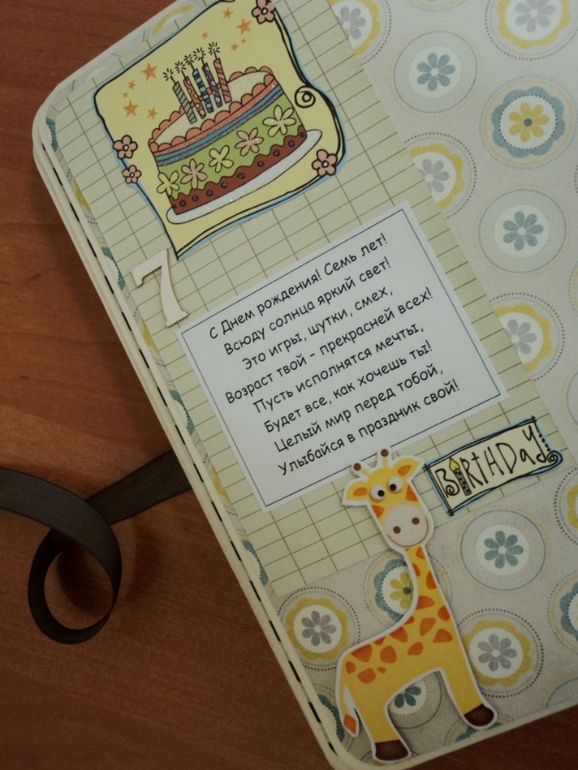 7
С Днем рождения! Семь лет!
Всюду солнца яркий свет!
Это игры, шутки, смех,
Возраст твой - прекрасней всех!
Пусть исполнятся мечты,
Будет все, как хочешь ты!
Целый мир перед тобой,
Улыбайся в праздник свой!
BiRTHDaY